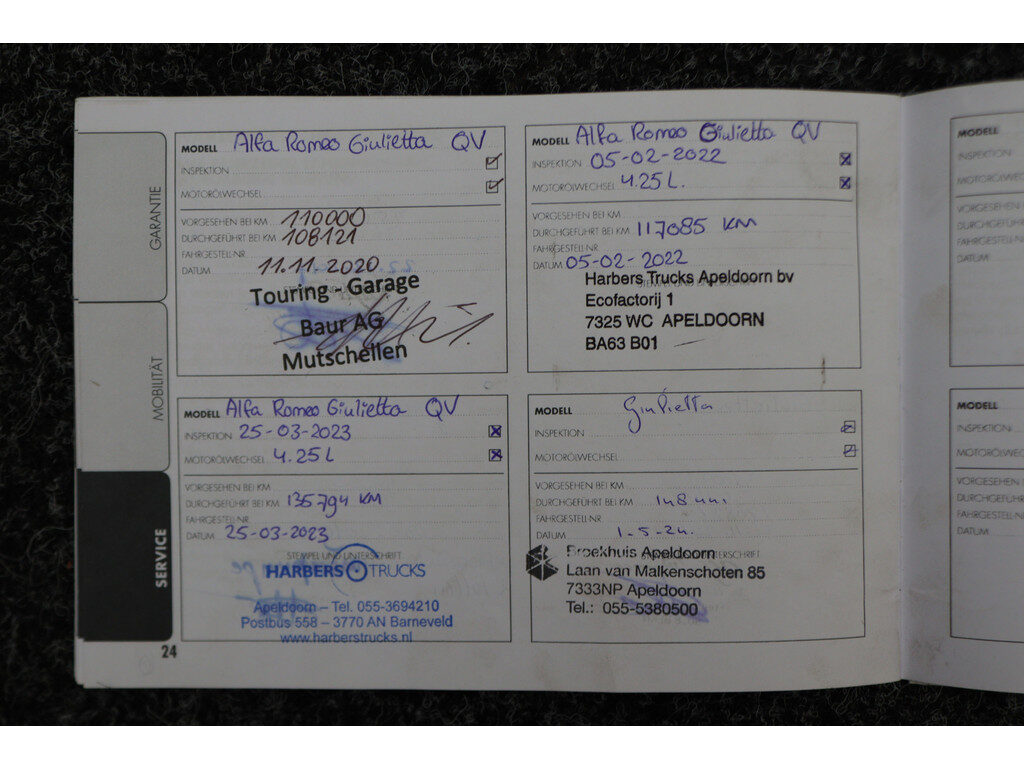 GARANTIE
MOBILITÄT
SERVICE
MODELL Alfa Romeo Giulietta QV
INSPEKTION
MOTORÖLWECHSEL
VORGESEHEN BEI KM 110000
DURCHGEFÜHRT BEI KM 108121
FAHRGESTELL-NR.
DATUM 11.11.2020
Touring - Garage
Baur AG
Mutschellen
MODELL Alfa Romeo Giulietta QV
INSPEKTION 05-02-2022
MOTORÖLWECHSEL 4.25L.
VORGESEHEN BEI KM
DURCHGEFÜHRT BEI KM 117085 KM
FAHRGESTELL-NR.
DATUM 05-02-2022
Harbers Trucks Apeldoorn bv
Ecofactorij 1
7325 WC APELDOORN
BA63 B01
MODELL Alfa Romeo Giulietta QV
INSPEKTION 25-03-2023
MOTORÖLWECHSEL 4.25L
VORGESEHEN BEI KM
DURCHGEFÜHRT BEI KM 135794 KM
FAHRGESTELL-NR.
DATUM 25-03-2023
STEMPEL UND UNTERSCHRIFT
HARBERS TRUCKS
Apeldoorn – Tel. 055-3694210
Postbus 558 – 3770 AN Barneveld
www.harberstrucks.nl
MODELL Giulietta
INSPEKTION
MOTORÖLWECHSEL
VORGESEHEN BEI KM
DURCHGEFÜHRT BEI KM
FAHRGESTELL-NR.
DATUM 1-5-24.
Broekhuis Apeldoorn
Laan van Malkenschoten 85
7333NP Apeldoorn
Tel.: 055-5380500
24
MODELL
INSPEKTION
MOTORÖLWECHS
VORGESEHEN BEI
DURCHGEFÜHRT
FAHRGESTELL-NR
DATUM
MODELL
INSPEKTION
MOTORÖLWECHS
VORGESEHEN BEI
DURCHGEFÜHRT
FAHRGESTELL-NR
DATUM